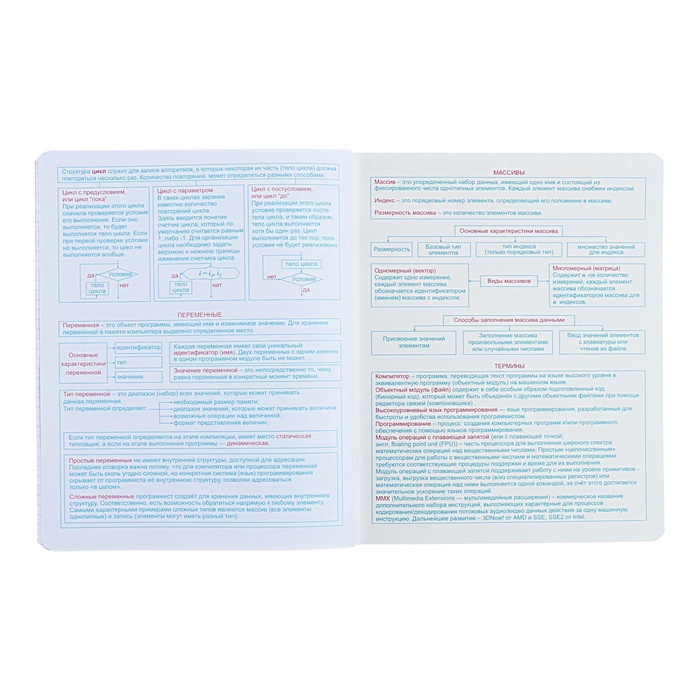 Структура цикл служит для записи алгоритмов, в которых некоторая их часть (тело цикла) должна
повторяться несколько раз. Количество повторений, может определяться разными способами
Цикл с предусловием,
или цикл "пока"
При реализации этого цикла
сначала проверяется условие
его выполнения. Если оно
выполняется, то будет
выполнятся тело цикла. Если
при первой проверке условие
не выполняется, то цикл не
выполняется вообще.
да
условие
тело
цикла
нет
Цикл с параметром
В таких циклах заранее
известно количество
повторений цикла.
Здесь вводится понятия
счетчик цикла, который по
умолчанию считается равным
1, либо -1. Для организации
цикла необходимо задать
верхнюю и нижнюю границы
изменения счетчика цикла.
да
тело
цикла
нет
Цикл с постусловием,
или цикл "до"
При реализации этого цикла
условие проверяется после
тела цикла, и таким образом,
тело цикла выполняется
хотя бы один раз. Цикл
выполняется до тех пор, пока
условие не будет реализовано
тело цикла
да
Условие
нет
ПЕРЕМЕННЫЕ
Переменная – это объект программы, имеющий имя и изменяемое значение. Для хранения
переменной в памяти компьютера выделено определенное место.
Основные
характеристики
переменной
идентификатор
тип
значение
Каждая переменная имеет свой уникальный
идентификатор (имя). Двух переменных с одним именем
в одном программном модуле быть не может.
Значение переменной – это непосредственно то, чему
равна переменная в конкретный момент времени.
Тип переменной – это диапазон (набор) всех значений, которые может принимать
данная переменная.
Тип переменной определяет
необходимый размер памяти;
диапазон значений, которые может принимать величина
возможные операции над величиной;
формат представления величин;
Если тип переменной определяется на этапе компиляции, имеет место статическая
типизация, а если на этапе выполнения программы — динамическая.
Простые переменные не имеют внутренней структуры, доступной для адресации.
Последняя оговорка важна потому, что для компилятора или процессора переменная
может быть сколь угодно сложной, но конкретная система (язык) программирования
скрывает от программиста её внутреннюю структуру, позволяя адресоваться
только «в целом».
Сложные переменные программист создаёт для хранения данных, имеющих внутреннюю
структуру. Соответственно, есть возможность обратиться напрямую к любому элементу.
Самыми характерными примерами сложных типов являются массив (все элементы
однотипные) и запись (элементы могут иметь разный тип).
МАССИВЫ
Массив – это упорядоченный набор данных, имеющий одно имя и состоящий из
фиксированного числа однотипных элементов. Каждый элемент массива снабжен индексом.
Индекс – это порядковый номер элемента, определяющий его положение в массиве.
Размерность массива – это количество элементов массива.
Основные характеристики массива
Размерность
Базовый тип
элементов
тип индекса
(только порядковый тип)
множество значений
для индекса
Одномерный (вектор)
Содержит одно измерение,
каждый элемент массива
обозначается идентификатором
(именем) массива с индексом.
Виды массивов
Многомерный (матрица)
Содержит и -ое количество
измерений; каждый элемент
массива обозначается
идентификатором массива для
и измерений.
Способы заполнения массива данными
Присвоение значений
элементам
Заполнение массива
произвольными элементами
или случайными числами
Ввод значений элементов
с клавиатуры или
чтение из файла
ТЕРМИНЫ
Компилятор – программа, переводящая текст программы на языке высокого уровня в
эквивалентную программу (объектный модуль) на машинном языке.
Объектный модуль (файл) содержит в себе особым образом подготовленный код
(бинарный код), который может быть объединён с другими объектными файлами при помощи
редактора связей (компоновщика)
Высокоуровневый язык программирования — язык программирования, разработанный для
быстроты и удобства использования программистом.
Программирование – процесс создания компьютерных программ и/или программного
обеспечения с помощью языков программирования.
Модуль операций с плавающей запятой (или с плавающей точкой;
англ. floating point unit (FPU)) – часть процессора для выполнения широкого спектра
математических операций над вещественными числами. Простым «целочисленным»
процессорам для работы с вещественными числами и математическими операциями
требуются соответствующие процедуры поддержки и время для их выполнения.
Модуль операций с плавающей запятой поддерживает работу с ними на уровне примитивов –
загрузка, выгрузка вещественного числа (в/из специализированных регистров) или
математическая операция над ними выполняется одной командой, за счёт этого достигается
значительное ускорение таких операций.
MMX (Multimedia Extensions — мультимедийные расширения) – коммерческое название
дополнительного набора инструкций, выполняющих характерные для процессов
кодирования/декодирования потоковых аудио/видео данных действия за одну машинную
инструкцию. Дальнейшее развитие – 3DNow! от AMD и SSE, SSE2 от Intel.